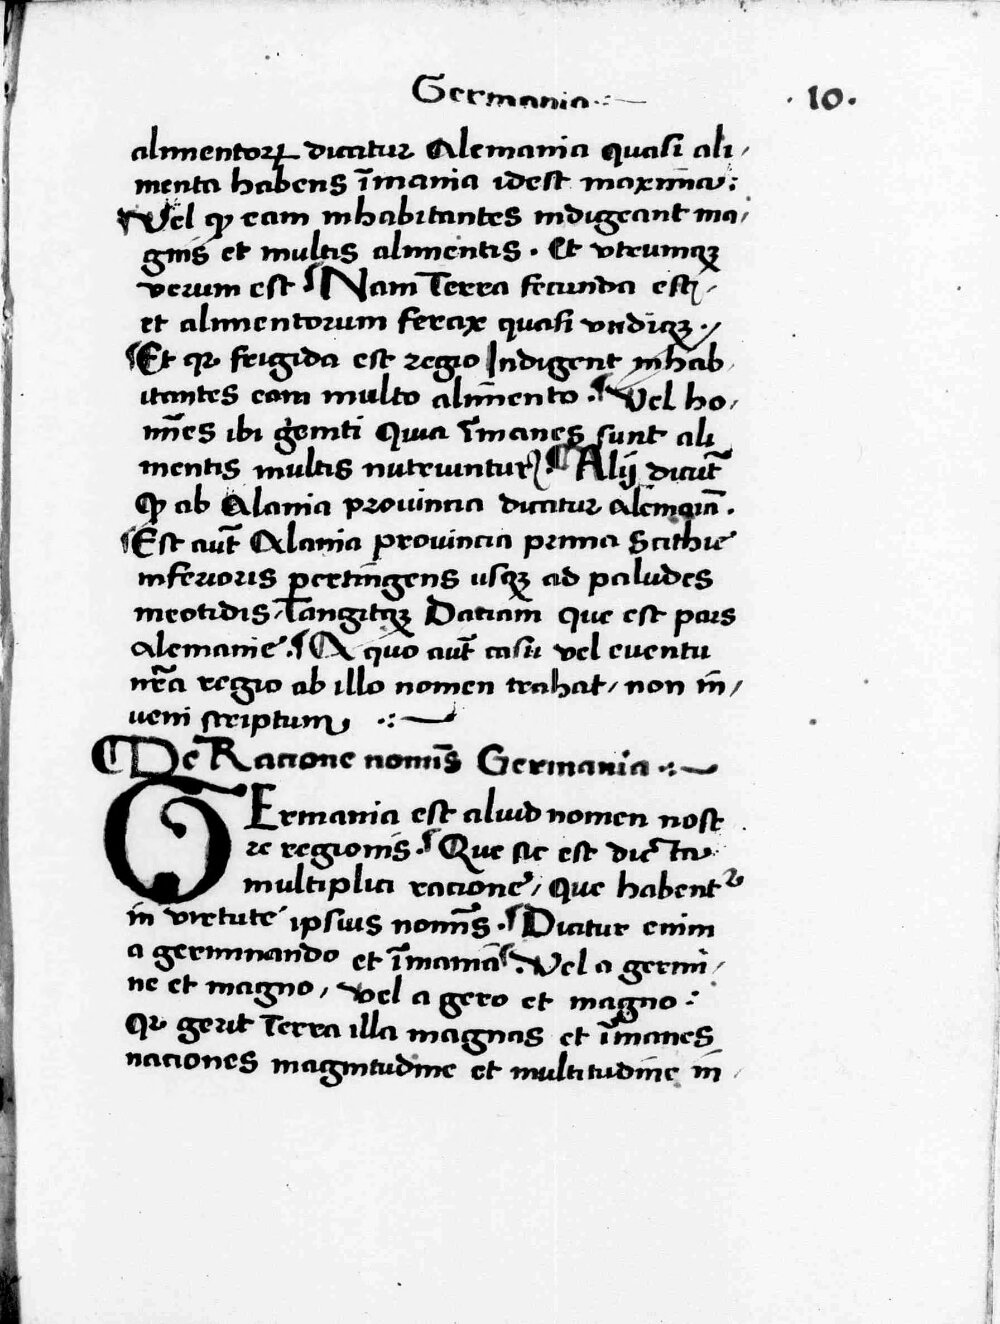 Germania
.10.
alimentoꝝ dicitur Alemania quasi ali/
menta habens īmania idest maxima:
Vel ꝙ eam inhabitantes indigeant ma/
gnis et multis alimentis. Et vtrumqꝫ
verum est ¶Nam Terra fecunda est/
et alimentorum ferax quasi vndiqꝫ./
¶Et qꝛ frigida est regio Indigent inhab/
itantes eam multo alimēnto. ¶Vel ho/
mīes ibi geniti Quia īmanes sunt ali
mentis multis nutriuntur. ¶Alij dicūt
ꝙ ab Alania prouincia dicitur alemaīa.
¶Est aūt Alania prouincia prima Scithie
inferioris pertingens usqꝫ ad paludes
meotidis/Tangitqꝫ Daciam que est pars
alemanie. ¶A quo aūt casu vel euentu
nr̄a regio ab illo nomen trahat/non in/
ueni scriptum
¶De Racione nomīs Germania
GErmania est aliud nomen nost
re regionis. ¶Que sic est dicta
multiplici racione/Que habentꝛ
in virtute ipsius nomīs. ¶Dicitur enim
a germinando et īmania ¶. Vel a germi/
ne et magno, vel a gero et magno:
Qꝛ gerit Terra illa magnas et īmanes
naciones magnitudine et multitudine in